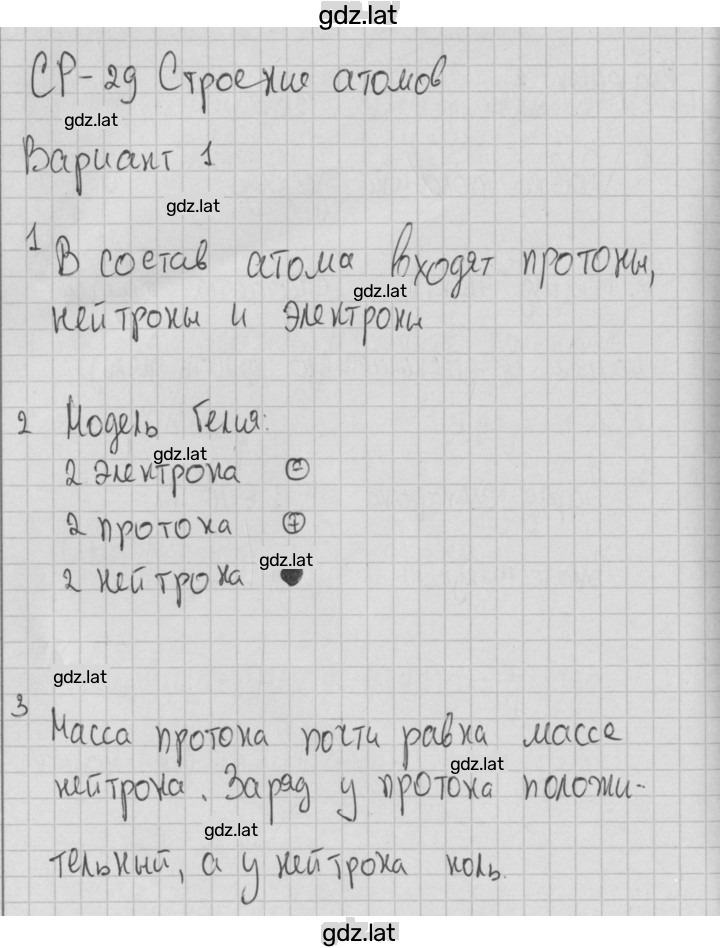 gdz.lat
СР-29 Строение атомов
gdz.lat
Вариант 1
gdz.lat
1 В состав атома входят протоны,
gdz.lat
нейтроны и электроны
2 Модель Гелия:
gdz.lat
2 электрона ⊖
2 протона ⊕
gdz.lat
2 нейтрона
gdz.lat
3 Масса протона почти равна массе
gdz.lat
нейтрона. Заряд у протона положи-
gdz.lat
тельный, а у нейтрона ноль.
gdz.lat